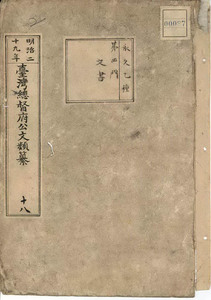 00007
永久乙種
第四門
文書
明治二
十九年
臺灣總督府公文類纂
十八